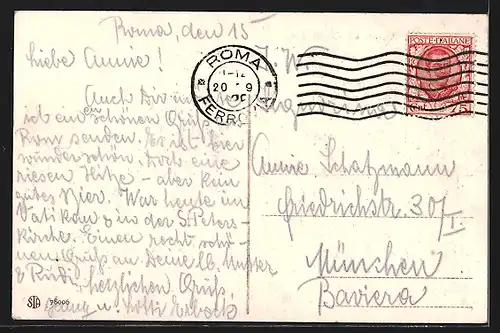 Roma, den 15
Liebe Annie!
Auch Dir
ich ein schönen Gruß
Rom senden. Es ist hier
wunderschön. Doch eine
riesen Hitze - aber kein
gutes Bier. War heute im
Vatikan & in der S. Peters-
kirche. Einen recht schö-
nen Gruß an Deine lb. Mutter
& Rudi, herzlichen Gruß
u. Lotti
STA 78006
ROMA
20 9
FERROVIA
POSTE ITALIANE
Annie Schatzmann
Friedrichstr. 30/I.
München
Baviera